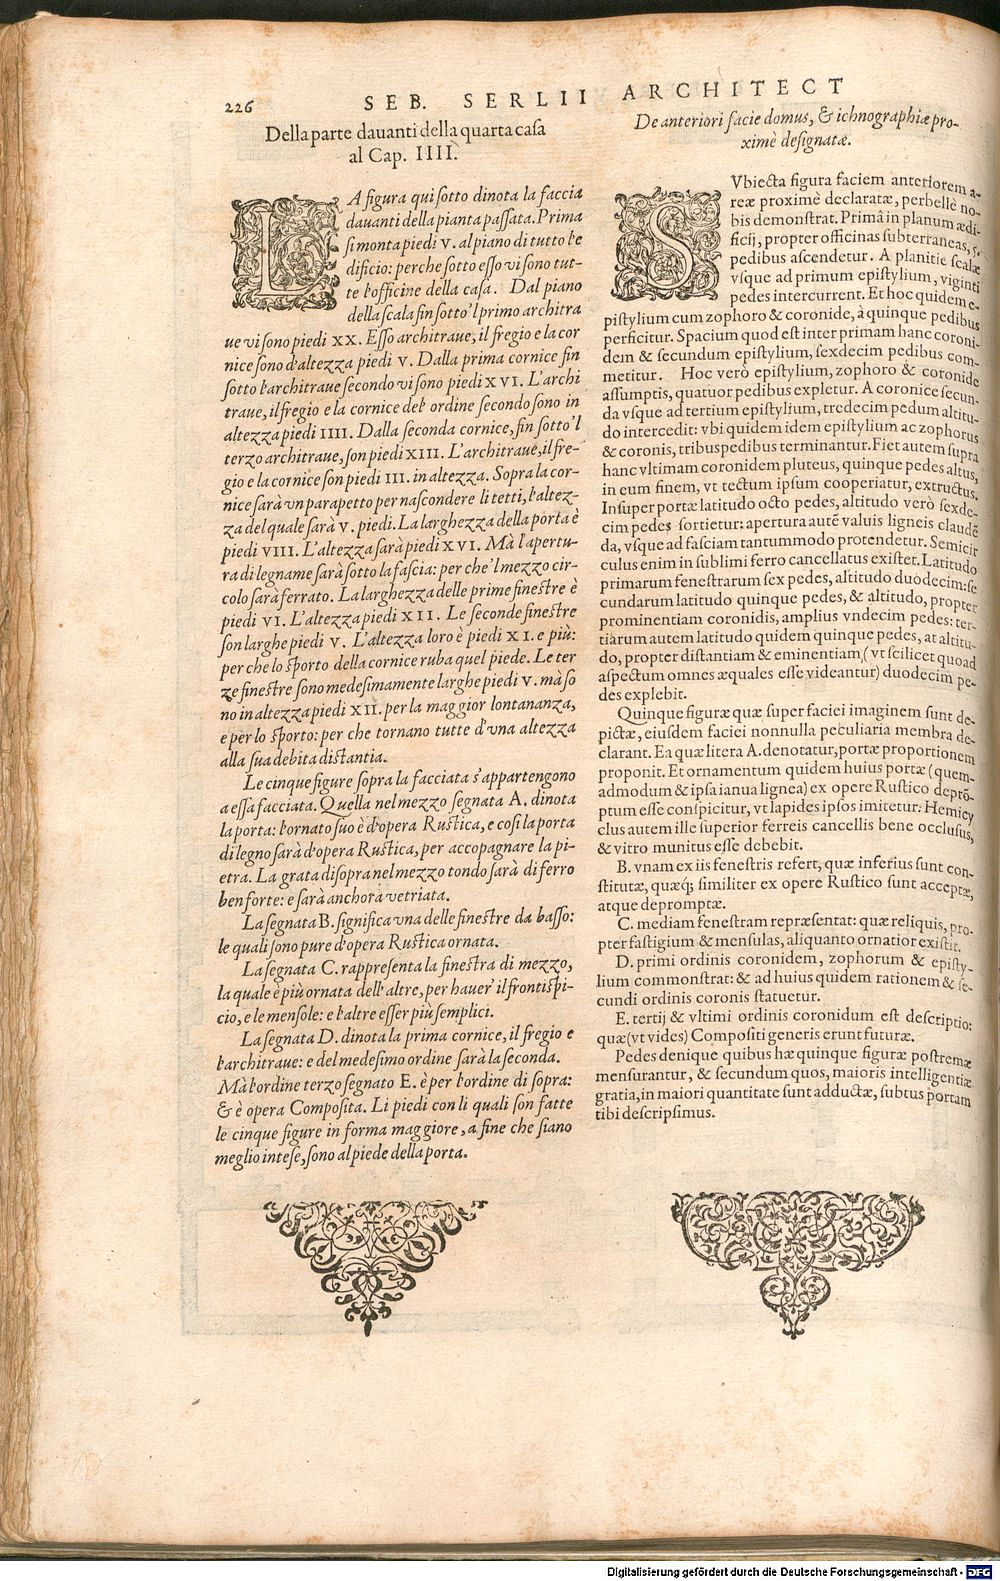 226
SEB. SERLII ARCHITECT
Della parte dauanti della quarta casa
al Cap. IIII.
LA figura qui sotto dinota la faccia
dauanti della pianta passata. Prima
si monta piedi V. al piano di tutto l'e
dificio: perche sotto esso vi sono tut-
te l'officine della casa. Dal piano
della scala fin sotto'l primo architra
ue vi sono piedi XX. Esso architraue, il fregio e la cor
nice sono d'altezza piedi V. Dalla prima cornice fin
sotto l'architraue secondo vi sono piedi XVI. L'archi
traue, il fregio e la cornice del' ordine secondo sono in
altezza piedi IIII. Dalla seconda cornice, fin sotto'l
terzo architraue, son piedi XIII. L'architraue, il fre-
gio e la cornice son piedi III. in altezza. Sopra la cor-
nice sarà vn parapetto per nascondere li tetti, l'altez-
za del quale sarà V. piedi. La larghezza della porta è
piedi VIII. L'altezza sarà piedi XVI. Mà l'apertu-
ra di legname sarà sotto la fascia: per che'l mezzo cir-
colo sarà ferrato. La larghezza delle prime finestre è
piedi VI. L'altezza piedi XII. Le seconde finestre
son larghe piedi V. L'altezza loro è piedi XI. e più:
per che lo sporto della cornice ruba quel piede. Le ter
ze finestre sono medesimamente larghe piedi V. mà so
no in altezza piedi XII. per la maggior lontananza,
e per lo sporto: per che tornano tutte d'vna altezza
alla sua debita distantia.
Le cinque figure sopra la facciata s'appartengono
a essa facciata. Quella nel mezzo segnata A. dinota
la porta: l'ornato suo è d'opera Rustica, e così la porta
di legno sarà d'opera Rustica, per accopagnare la pi-
etra. La grata di sopra nel mezzo tondo sarà di ferro
ben forte: e sarà anchora vetriata.
La segnata B. significa vna delle finestre da basso:
le quali sono pure d'opera Rustica ornata.
La segnata C. rappresenta la finestra di mezzo,
la quale è più ornata dell'altre, per hauer' il frontispi-
cio, e le mensole: e l'altre esser più semplici.
La segnata D. dinota la prima cornice, il fregio e
l'architraue: e del medesimo ordine sarà la seconda.
Mà l'ordine terzo segnato E. è per l'ordine di sopra:
& è opera Composita. Li piedi con li quali son fatte
le cinque figure in forma maggiore, a fine che siano
meglio intese, sono al piede della porta.
De anteriori facie domus, & ichnographiæ pro-
ximè designatæ.
SVbiecta figura faciem anteriorem a-
reæ proximè declaratæ, perbellè no-
bis demonstrat. Primâ in planum ædi-
ficij, propter officinas subterraneas, 5.
pedibus ascendetur. A planitie scalæ
vsque ad primum epistylium, viginti
pedes intercurrent. Et hoc quidem e-
pistylium cum zophoro & coronide, à quinque pedibus
perficitur. Spacium quod est inter primam hanc coroni-
dem & secundum epistylium, sexdecim pedibus com-
metitur. Hoc verò epistylium, zophoro & coronide
assumptis, quatuor pedibus expletur. A coronice secun-
da vsque ad tertium epistylium, tredecim pedum altitu-
do intercedit: vbi quidem idem epistylium ac zophorus
& coronis, tribus pedibus terminantur. Fiet autem supra
hanc vltimam coronidem pluteus, quinque pedes altus,
in eum finem, vt tectum ipsum cooperiatur, extructus.
Insuper portæ latitudo octo pedes, altitudo verò sexde-
cim pedes sortietur: apertura autē valuis ligneis claudē
da, vsque ad fasciam tantummodo protendetur. Semicir
culus enim in sublimi ferro cancellatus existet. Latitudo
primarum fenestrarum sex pedes, altitudo duodecim: se
cundarum latitudo quinque pedes, & altitudo, propter
prominentiam coronidis, amplius vndecim pedes: ter-
tiarum autem latitudo quidem quinque pedes, at altitu-
do, propter distantiam & eminentiam, (vt scilicet quoad
aspectum omnes æquales esse videantur) duodecim pe-
des explebit.
Quinque figuræ quæ super faciei imaginem sunt de-
pictæ, eiusdem faciei nonnulla peculiaria membra de-
clarant. Ea quæ litera A. denotatur, portæ proportionem
proponit. Et ornamentum quidem huius portæ (quem-
admodum & ipsa ianua lignea) ex opere Rustico deprō-
ptum esse conspicitur, vt lapides ipsos imitetur: Hemicy
clus autem ille superior ferreis cancellis bene occlusus,
& vitro munitus esse debebit.
B. vnam ex iis fenestris refert, quæ inferius sunt con-
stitutæ, quæq; similiter ex opere Rustico sunt acceptæ,
atque depromptæ.
C. mediam fenestram repræsentat: quæ reliquis, pro-
pter fastigium & mensulas, aliquanto ornatior existit.
D. primi ordinis coronidem, zophorum & episty-
lium commonstrat: & ad huius quidem rationem & se-
cundi ordinis coronis statuetur.
E. tertij & vltimi ordinis coronidum est descriptio:
quæ (vt vides) Compositi generis erunt futuræ.
Pedes denique quibus hæ quinque figuræ postremæ
mensurantur, & secundum quos, maioris intelligentiæ
gratia, in maiori quantitate sunt adductæ, subtus portam
tibi descripsimus.
Digitalisierung gefördert durch die Deutsche Forschungsgemeinschaft - DFG